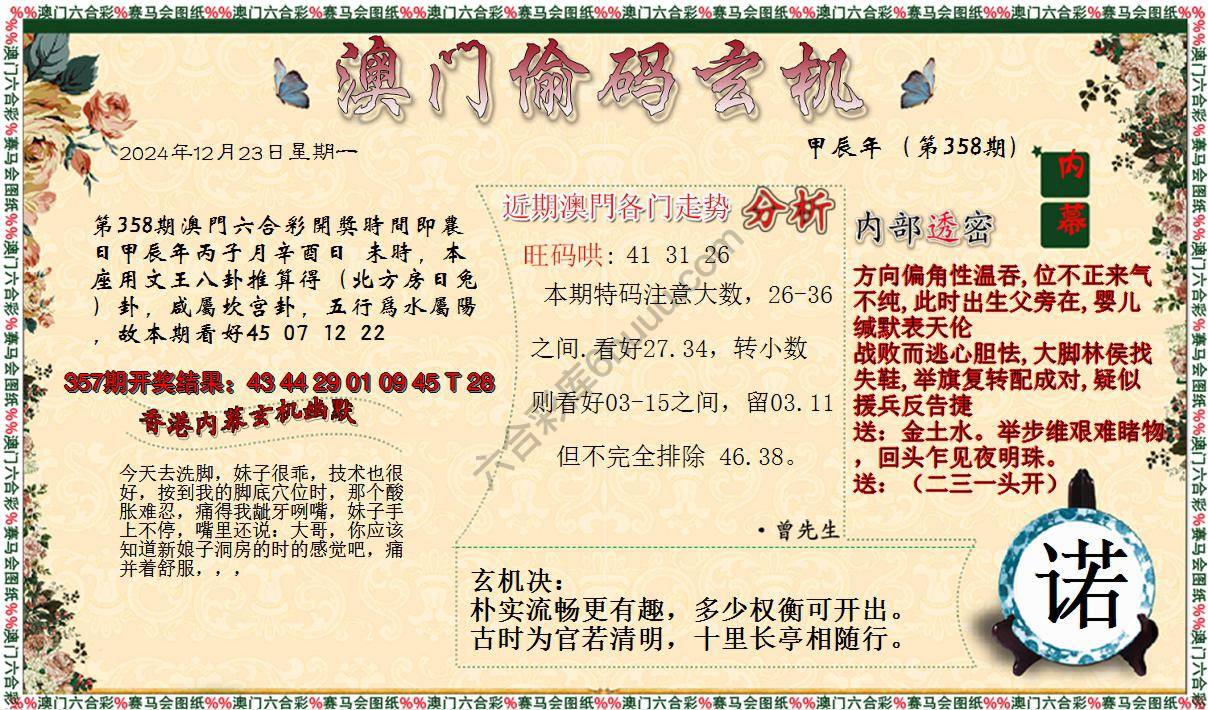 %%澳门六合彩%赛马会图纸%%澳门六合彩%赛马会图纸%%澳门六合彩%赛马会图纸%%澳门六合彩%赛马会图纸%%澳门六合彩%赛马会图纸%%澳门六合彩%赛马会图纸%%
澳门偷码玄机
2024年12月23日星期一
甲辰年（第358期）
内
幕
第358期澳門六合彩開獎時間即農
日甲辰年丙子月辛酉日 未時，本
座用文王八卦推算得（北方房日兔
）卦，咸屬坎宫卦，五行爲水屬陽
，故本期看好45 07 12 22
357期开奖结果：43 44 29 01 09 45 T 28
香港内幕玄机幽默
今天去洗脚，妹子很乖，技术也很
好，按到我的脚底穴位时，那个酸
胀难忍，痛得我龇牙咧嘴，妹子手
上不停，嘴里还说：大哥，你应该
知道新娘子洞房的时的感觉吧，痛
并着舒服，，，
近期澳門各门走势 分析
旺码哄：41 31 26
本期特码注意大数，26-36
之间.看好27.34，转小数
则看好03-15之间，留03.11
但不完全排除 46.38。
·曾先生
内部透密
方向偏角性温吞,位不正来气
不纯,此时出生父旁在,婴儿
缄默表天伦
战败而逃心胆怯,大脚林侯找
失鞋,举旗复转配成对,疑似
援兵反告捷
送：金土水。举步维艰难睹物
，回头乍见夜明珠。
送：（二三一头开）
玄机决：
朴实流畅更有趣，多少权衡可开出。
古时为官若清明，十里长亭相随行。
诺
%%澳门六合彩%赛马会图纸%%澳门六合彩%赛马会图纸%%澳门六合彩%赛马会图纸%%澳门六合彩%赛马会图纸%%澳门六合彩%赛马会图纸%%澳门六合彩%赛马会图纸%%